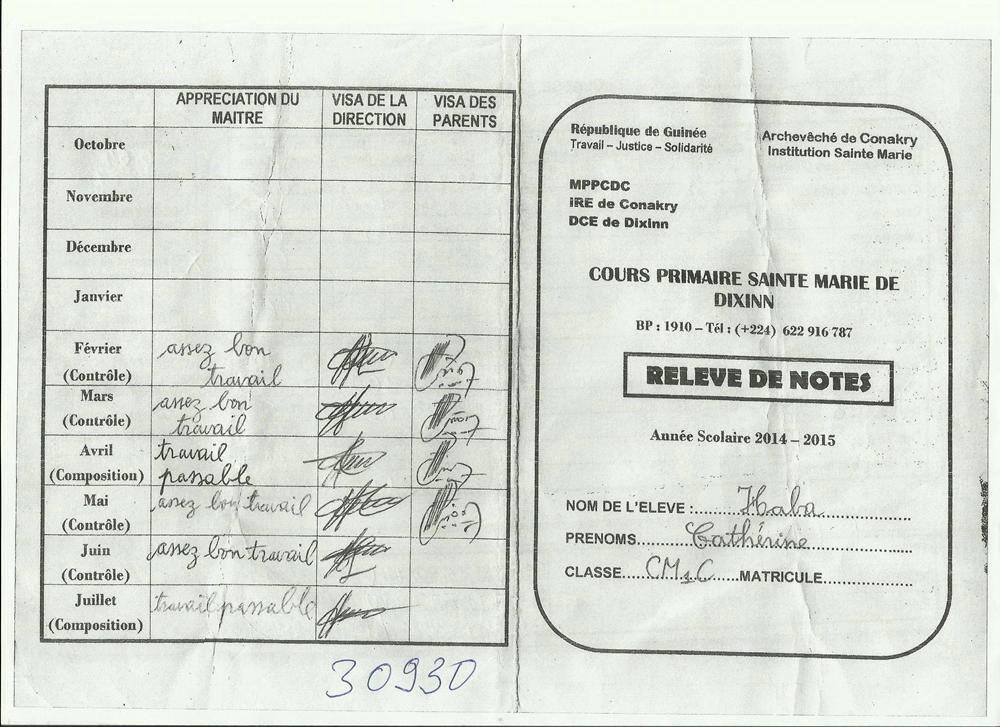 APPRECIATION DU MAITRE
VISA DE LA DIRECTION
VISA DES PARENTS
Octobre
Novembre
Décembre
Janvier
Février
(Contrôle)
assez bon
travail
Mars
(Contrôle)
assez bon
travail
Avril
(Composition)
travail
passable
Mai
(Contrôle)
assez bon travail
Juin
(Contrôle)
assez bon travail
Juillet
(Composition)
travail passable
30930
République de Guinée
Travail – Justice – Solidarité
Archevêché de Conakry
Institution Sainte Marie
MPPCDC
IRE de Conakry
DCE de DixInn
COURS PRIMAIRE SAINTE MARIE DE
DIXINN
BP : 1910 – Tél : (+224) 622 916 787
RELEVE DE NOTES
Année Scolaire 2014 – 2015
NOM DE L'ELEVE : Haba
PRENOMS Cathérine
CLASSE MATRICULE